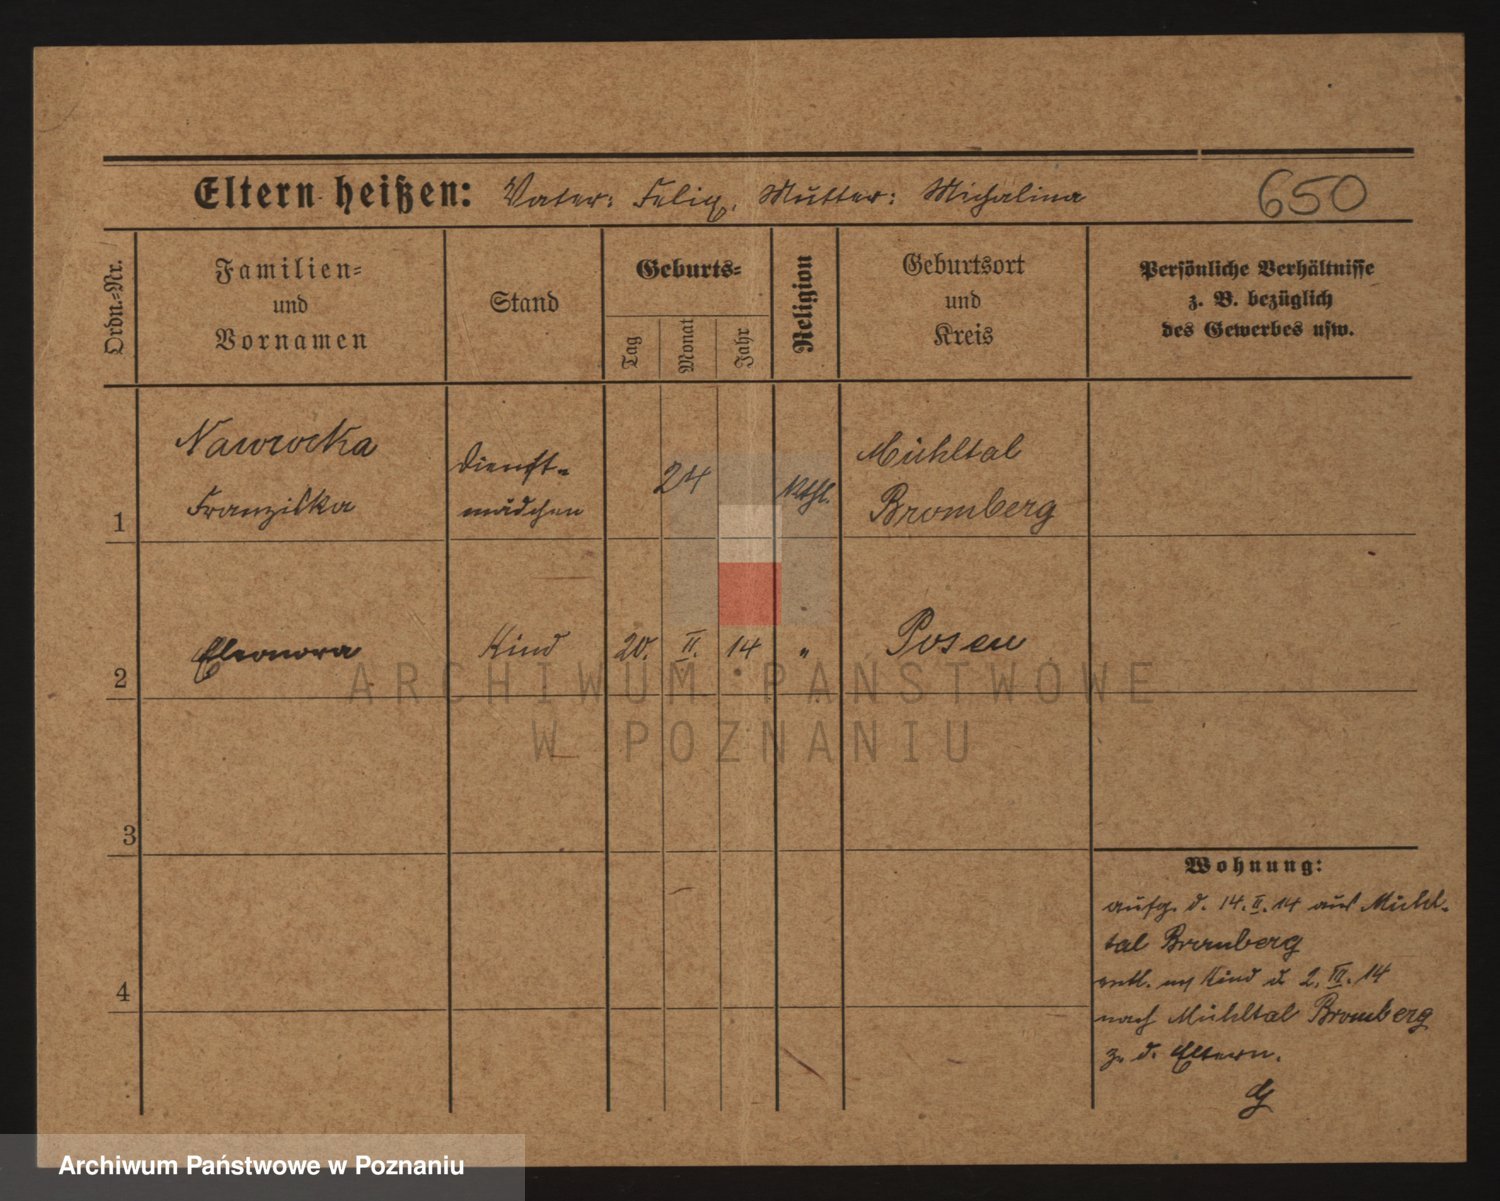 Eltern heißen: Vater: Felix, Mutter: Michalina 650
Ordn.-Nr.
Familien-
und
Vornamen
Stand
Geburts-
Tag
Monat
Jahr
Religion
Geburtsort
und
Kreis
Persönliche Verhältnisse
z. B. bezüglich
des Gewerbes usw.
Nawrocka
Franziska
1
Dienst-
mädchen
24
kthl.
Mühltal
Bromberg
2 Eleonora Kind 20. II. 14 " Posen
ARCHIWUM PAŃSTWOWE
W POZNANIU
3
4
Wohnung:
aufg. d. 14. II. 14 aus Mühl-
tal Bromberg
entl. m Kind d. 2. 14
nach Mühltal Bromberg
z. d. Eltern.
Archiwum Państwowe w Poznaniu